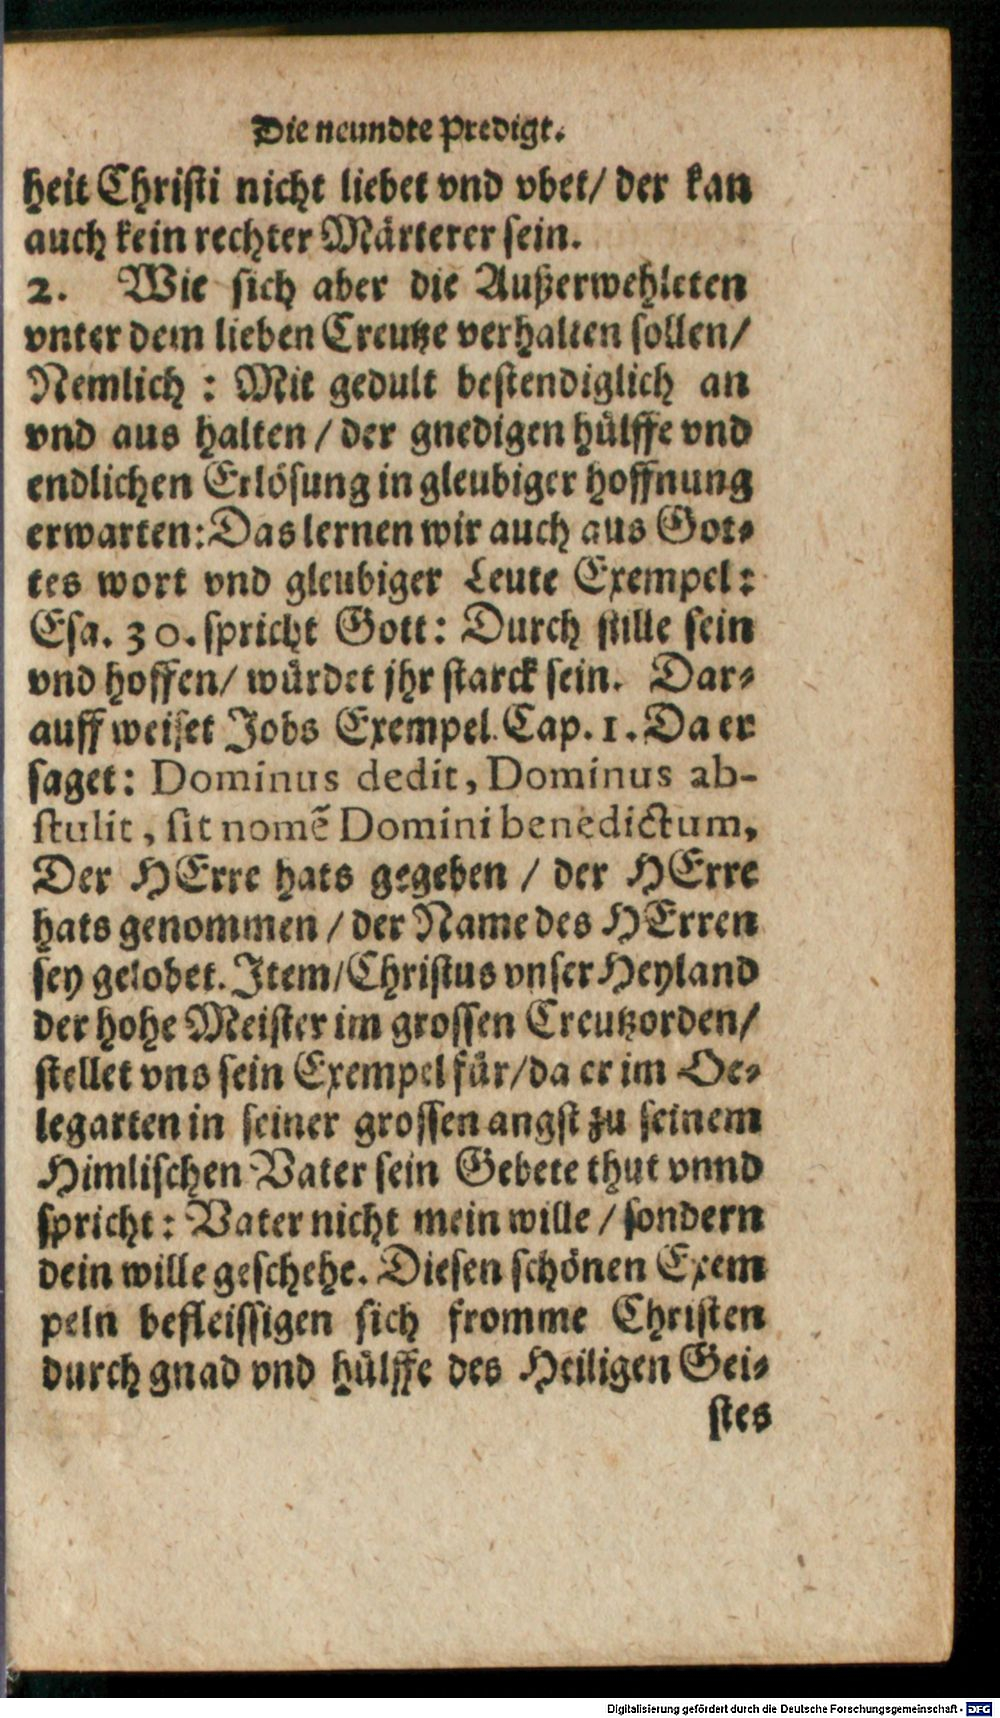 Die neundte Predigt.
heit Christi nicht liebet vnd vbet/ der kan
auch kein rechter Märterer sein.
2. Wie sich aber die Außerwehleten
vnter dem lieben Creutze verhalten sollen/
Nemlich : Mit gedult bestendiglich an
vnd aus halten / der gnedigen hülffe vnd
endlichen Erlösung in gleubiger hoffnung
erwarten: Das lernen wir auch aus Got-
tes wort vnd gleubiger Leute Exempel:
Esa. 30. spricht Gott: Durch stille sein
vnd hoffen/ würdet jhr starck sein. Dar-
auff weiset Jobs Exempel. Cap. 1. Da er
saget: Dominus dedit, Dominus ab-
stulit, sit nomẽ Domini benedictum,
Der HErre hats gegeben / der HErre
hats genommen / der Name des HErren
sey gelobet. Item/ Christus vnser Heyland
der hohe Meister im grossen Creutzorden/
stellet vns sein Exempel für/ da er im Oe-
legarten in seiner grossen angst zu seinem
Himlischen Vater sein Gebete thut vnnd
spricht: Vater nicht mein wille / sondern
dein wille geschehe. Diesen schönen Exem
peln befleissigen sich fromme Christen
durch gnad vnd hülffe des Heiligen Gei-
stes
Digitalisierung gefördert durch die Deutsche Forschungsgemeinschaft - DFG